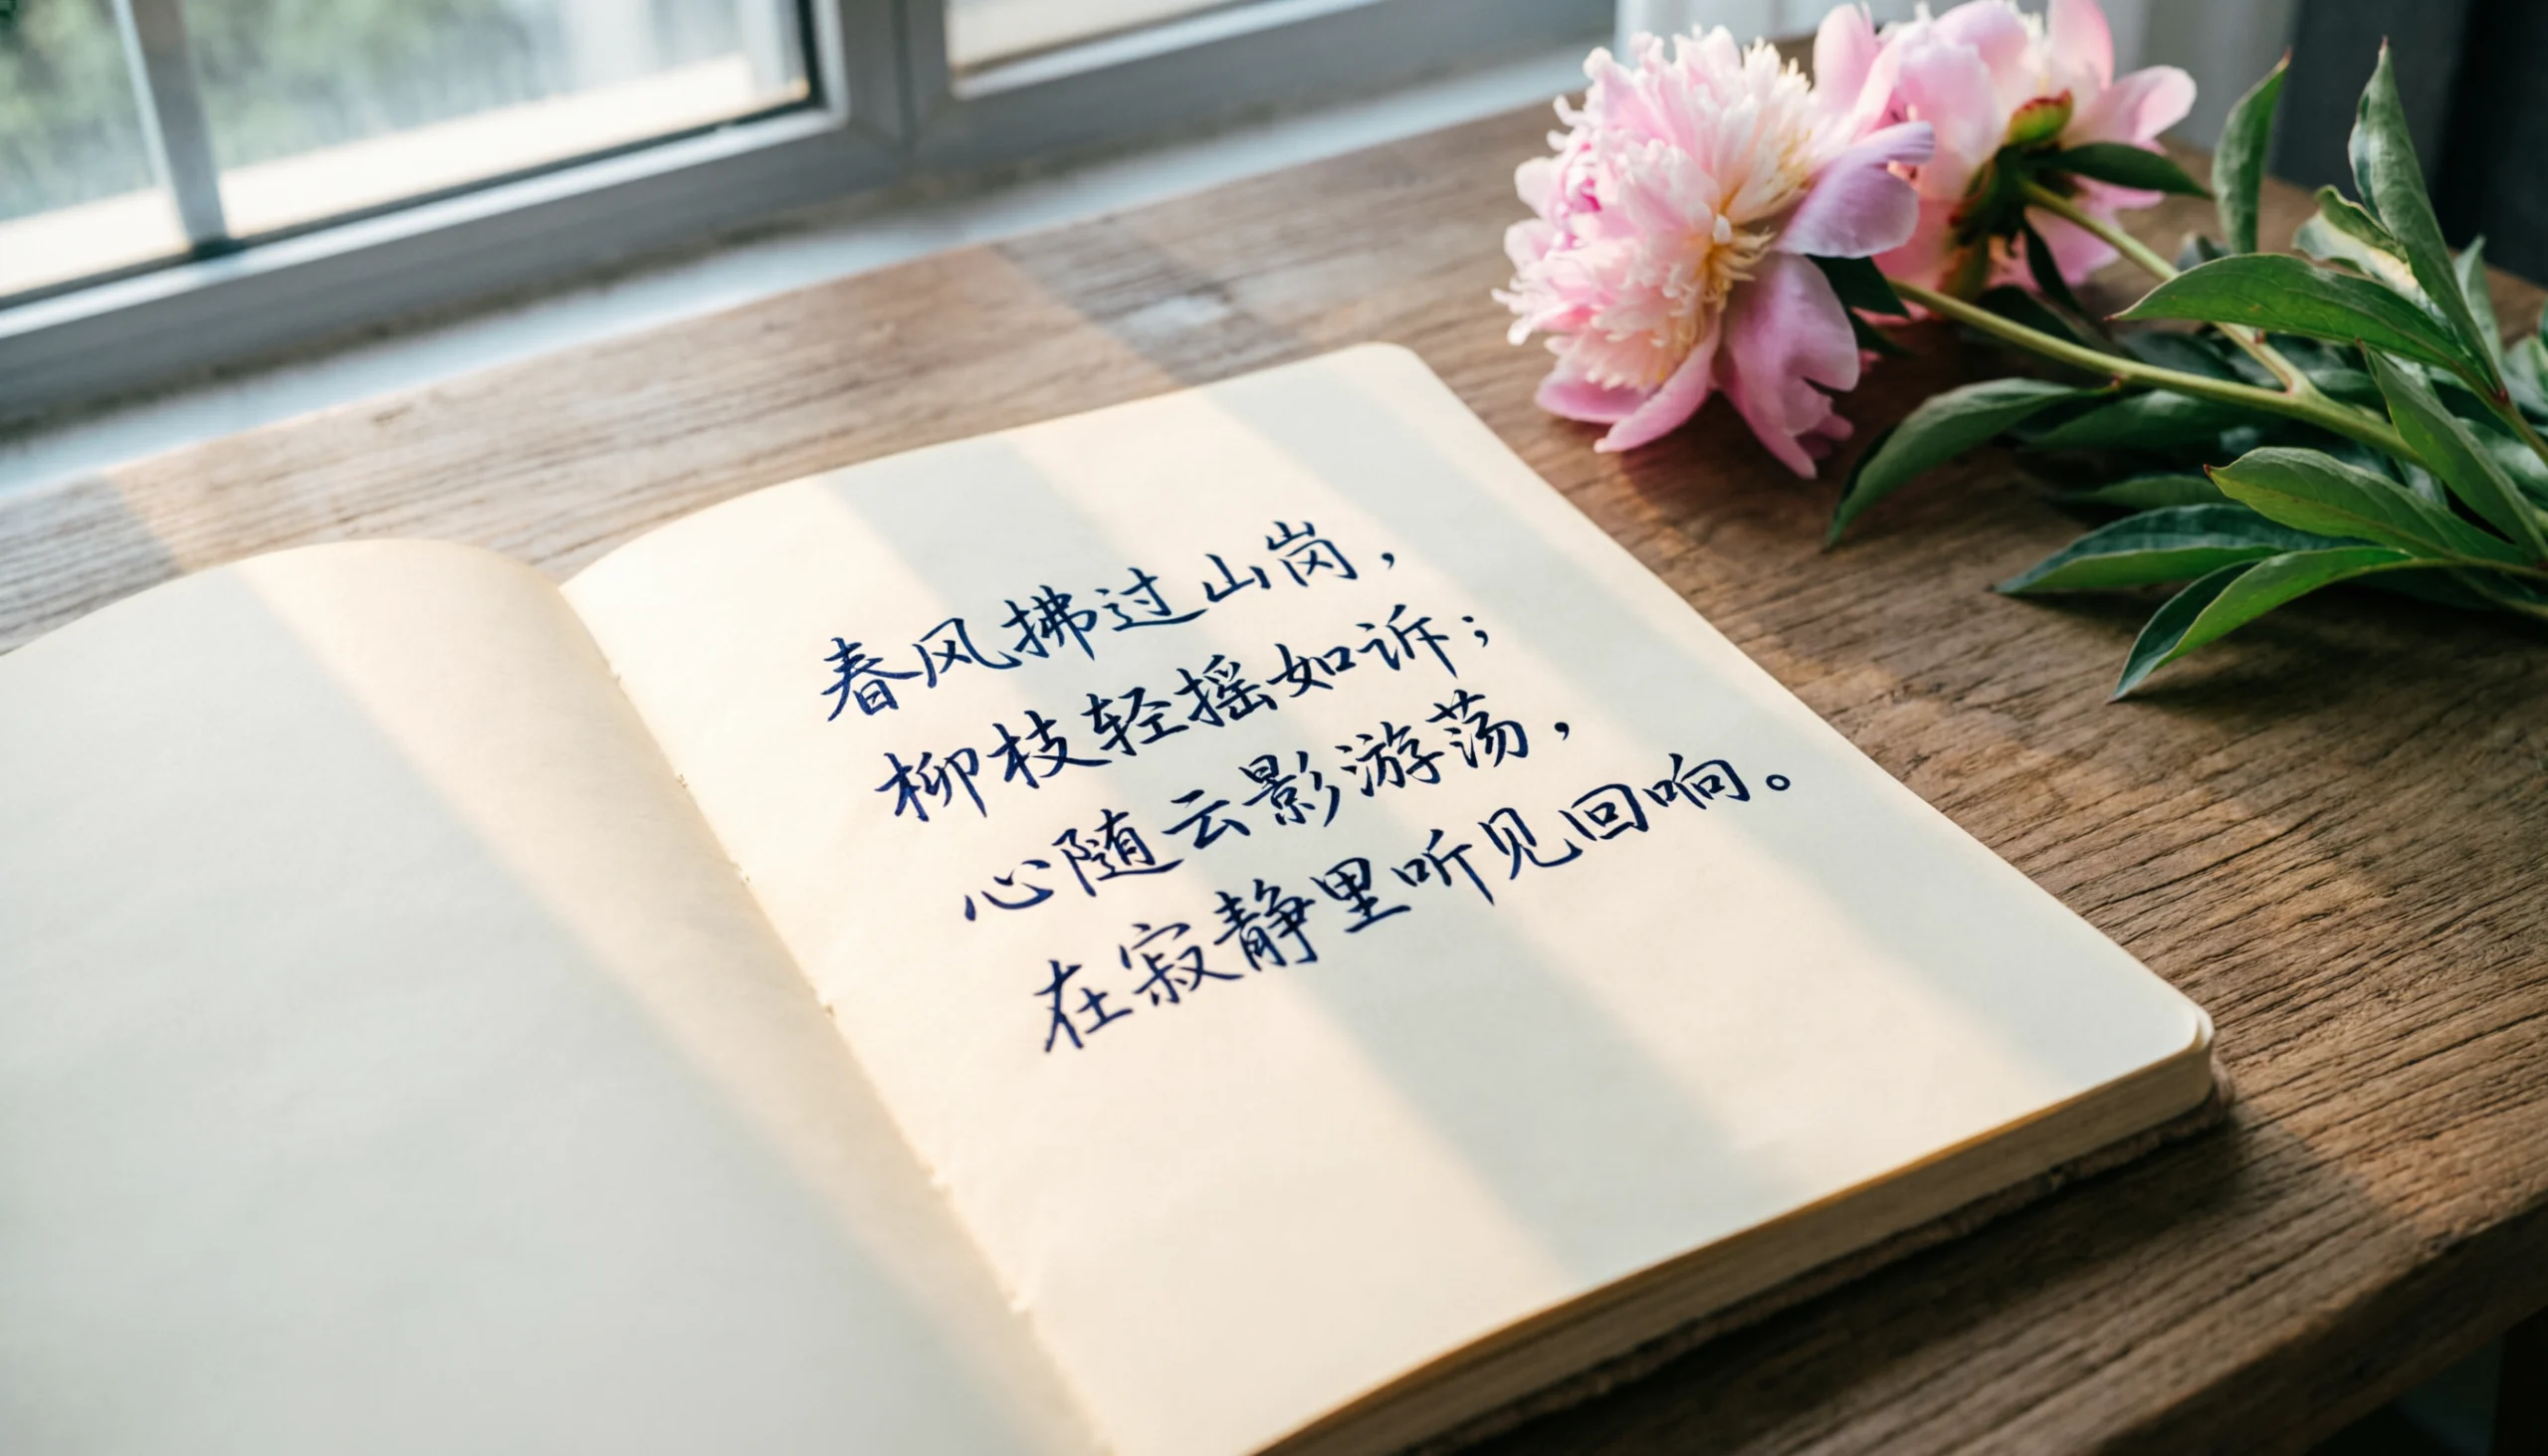 春风拂过山岗，
柳枝轻摇如诉；
心随云影游荡，
在寂静里听见回响。